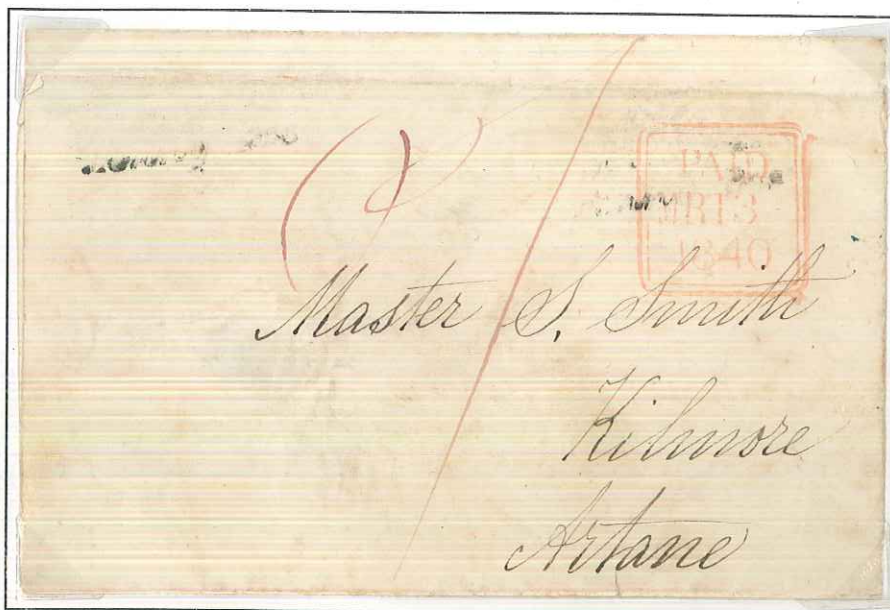 PAID
MR13
1840
Master S. Smith
Kilmore
Artane